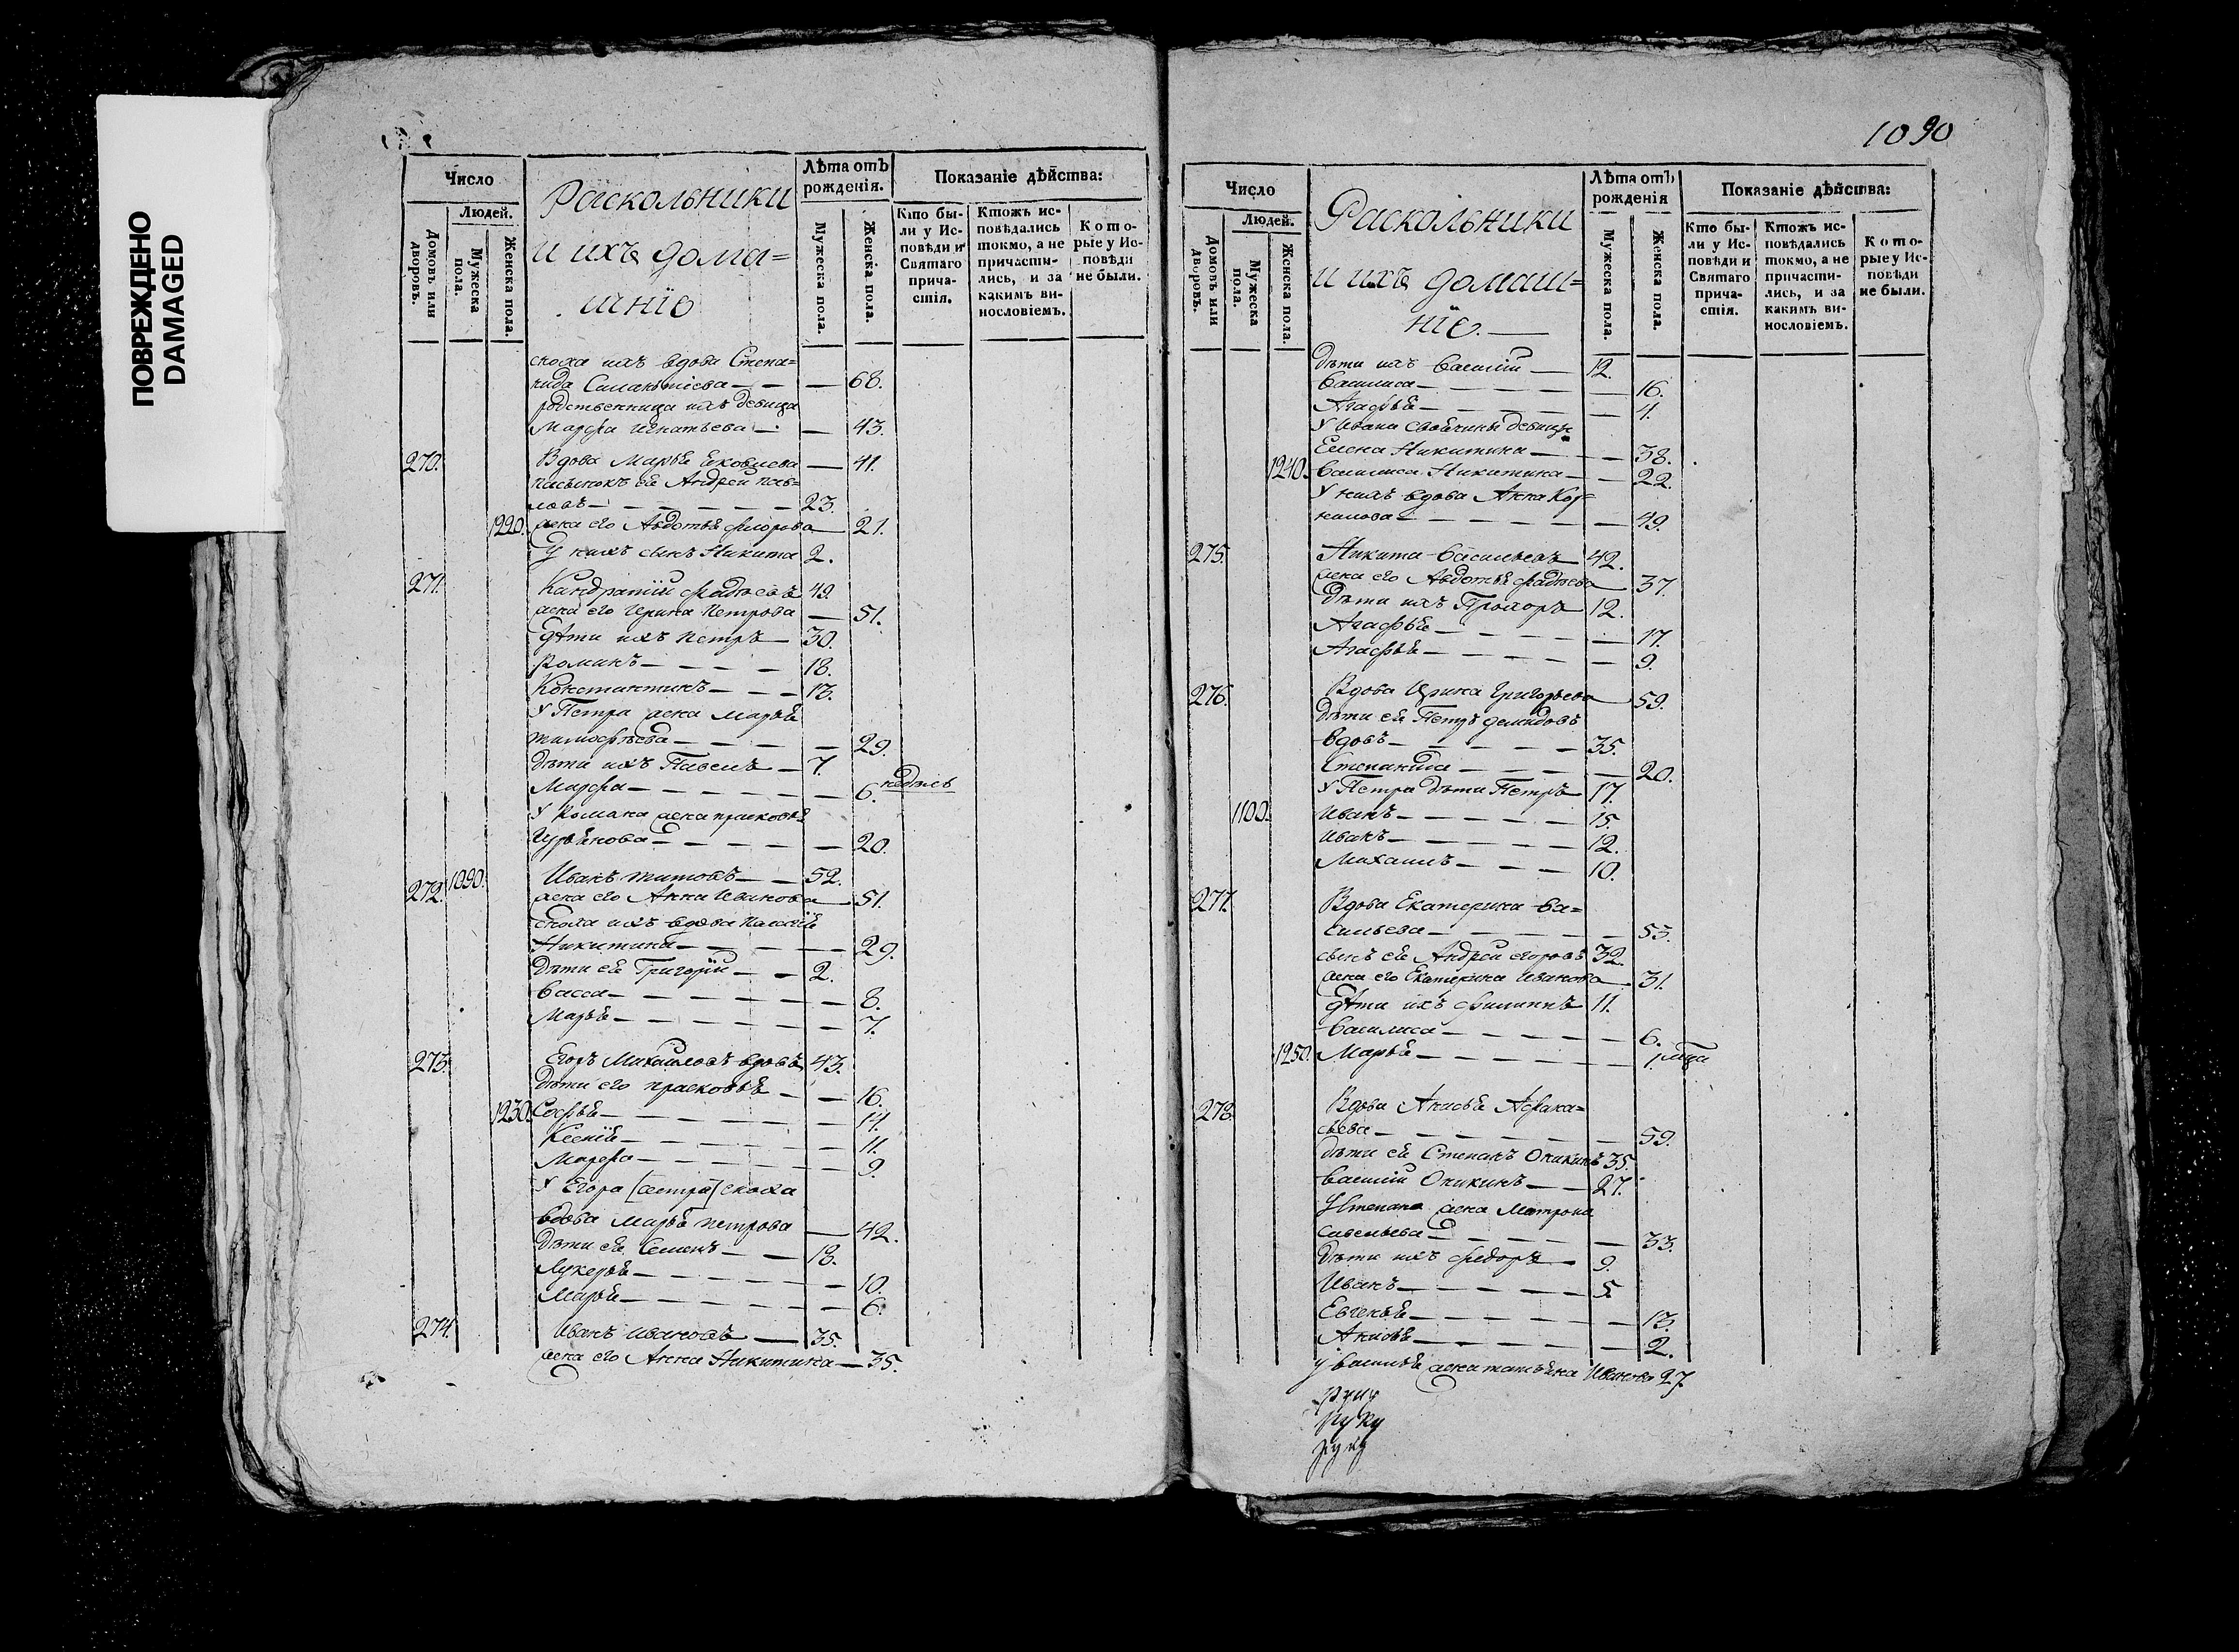 ПОВРЕЖДЕНО
DAMAGED
Число
Людей.
Домовъ или дворовъ.
Мужеска пола.
Женска пола.
Раскольники
и ихъ дома=
шнiе
Лѣта отъ рожденiя.
Мужеска пола.
Женска пола.
Показанiе дѣйства:
Кто бы-
ли у Ис-
повѣди и
Святаго
прича-
стiя.
Ктожъ ис-
повѣдались
токмо, а не
причасти-
лись, и за
какимъ ви-
нословiемъ.
Кото-
рые у Ис-
повѣди
не были.
сноха ихъ вдова Степа=
нида — — — 68.
родственница ихъ девица
Марфа Игнатьева — — 43.
270. Вдова Марья Яковлева — 41.
пасынокъ ея Андрей пав=
ловъ — — — — 23.
1220. жена его Авдотья флорова — 21.
У нихъ сынъ Никита 2.
271. Кандратiй фадѣевъ 49.
жена его Ирина Петрова — 51.
Дѣти ихъ Петръ — 30.
Романъ — — — — 18.
Константинъ — — — 13.
У Петра жена Марья
тимофѣева — — — — 29.
Дѣти ихъ Павелъ — 7.
Марфа — — — — — 6.
У Романа жена прасковья
Гурьянова — — — — 20.
272. 1090. Иванъ титовъ — — 52.
жена его Анна Иванова — 51.
Сноха ихъ вдова Палагiя
Никитина — — — — 29.
Дѣти ея Григорiй — — 2.
Васса — — — — — 8.
Марья — — — — — 7.
273. Егоръ Михайловъ вдовъ 43.
Дѣти его прасковья — — 16.
1230. Софья — — — — — 14.
Ксенiя — — — — — 11.
Марфа — — — — — 9.
У Егора [сестра] сноха
вдова Марья петрова — 42.
Дѣти ея Семенъ — — 18.
Лукерья — — — — — 10.
Марья — — — — — 6.
274. Иванъ Ивановъ — 35.
жена его Анна Никитина — 35.
1090
Число
Людей.
Домовъ или дворовъ.
Мужеска пола.
Женска пола.
Раскольники
и ихъ домаш=
нiе. —
Лѣта отъ рожденiя
Мужеска пола.
Женска пола.
Показанiе дѣйства:
Кто бы-
ли у Ис-
повѣди и
Святаго
прича-
стiя.
Ктожъ ис-
повѣдались
токмо, а не
причасти-
лись, и за
какимъ ви-
нословiемъ.
Кото-
рые у Ис-
повѣди
не были.
Дѣти ихъ Василiй — 12.
Василиса — — — — — 16.
Агафья — — — — — 4.
У Ивана свойчины девицы
Елена Никитина — — 38.
1240. Василиса Никитина — — 22.
У нихъ вдова Анна Кор=
нилова — — — — — 49.
275. Никита Васильевъ 42.
жена его Авдотья фадѣева 37.
Дѣти ихъ Прохоръ 12.
Агафья — — — — — 17.
Агафья — — — — — 9.
276. Вдова Ирина Григорьева 59.
Дѣти ея Петръ демидовъ
вдовъ — — — — — 35.
Степанида — — — — 20.
У Петра дѣти Петръ 17.
1100. Иванъ — — — — — 15.
Иванъ — — — — — 12.
Михаилъ — — — 10.
277. Вдова Екатерина Ва=
сильева — — — — — 53.
сынъ ея Андрей егоровъ 32.
жена его Екатерина Иванова 31.
Дѣти ихъ филиппъ 11.
Василиса — — — — — 6.
1250. Марья — — — — — 1
278. Вдова Анисья Афана=
сьева — — — — — 59.
Дѣти ея Степанъ Оникинъ 35.
Василiй Оникинъ — — 27.
У Степана жена Матрона
савельева — — — — 33.
Дѣти ихъ федоръ — 9.
Иванъ — — — — — 5.
Евгенья — — — — — 13.
Анисья — — — — — 2.
У Василья жена татьяна Иванова 27.
руку